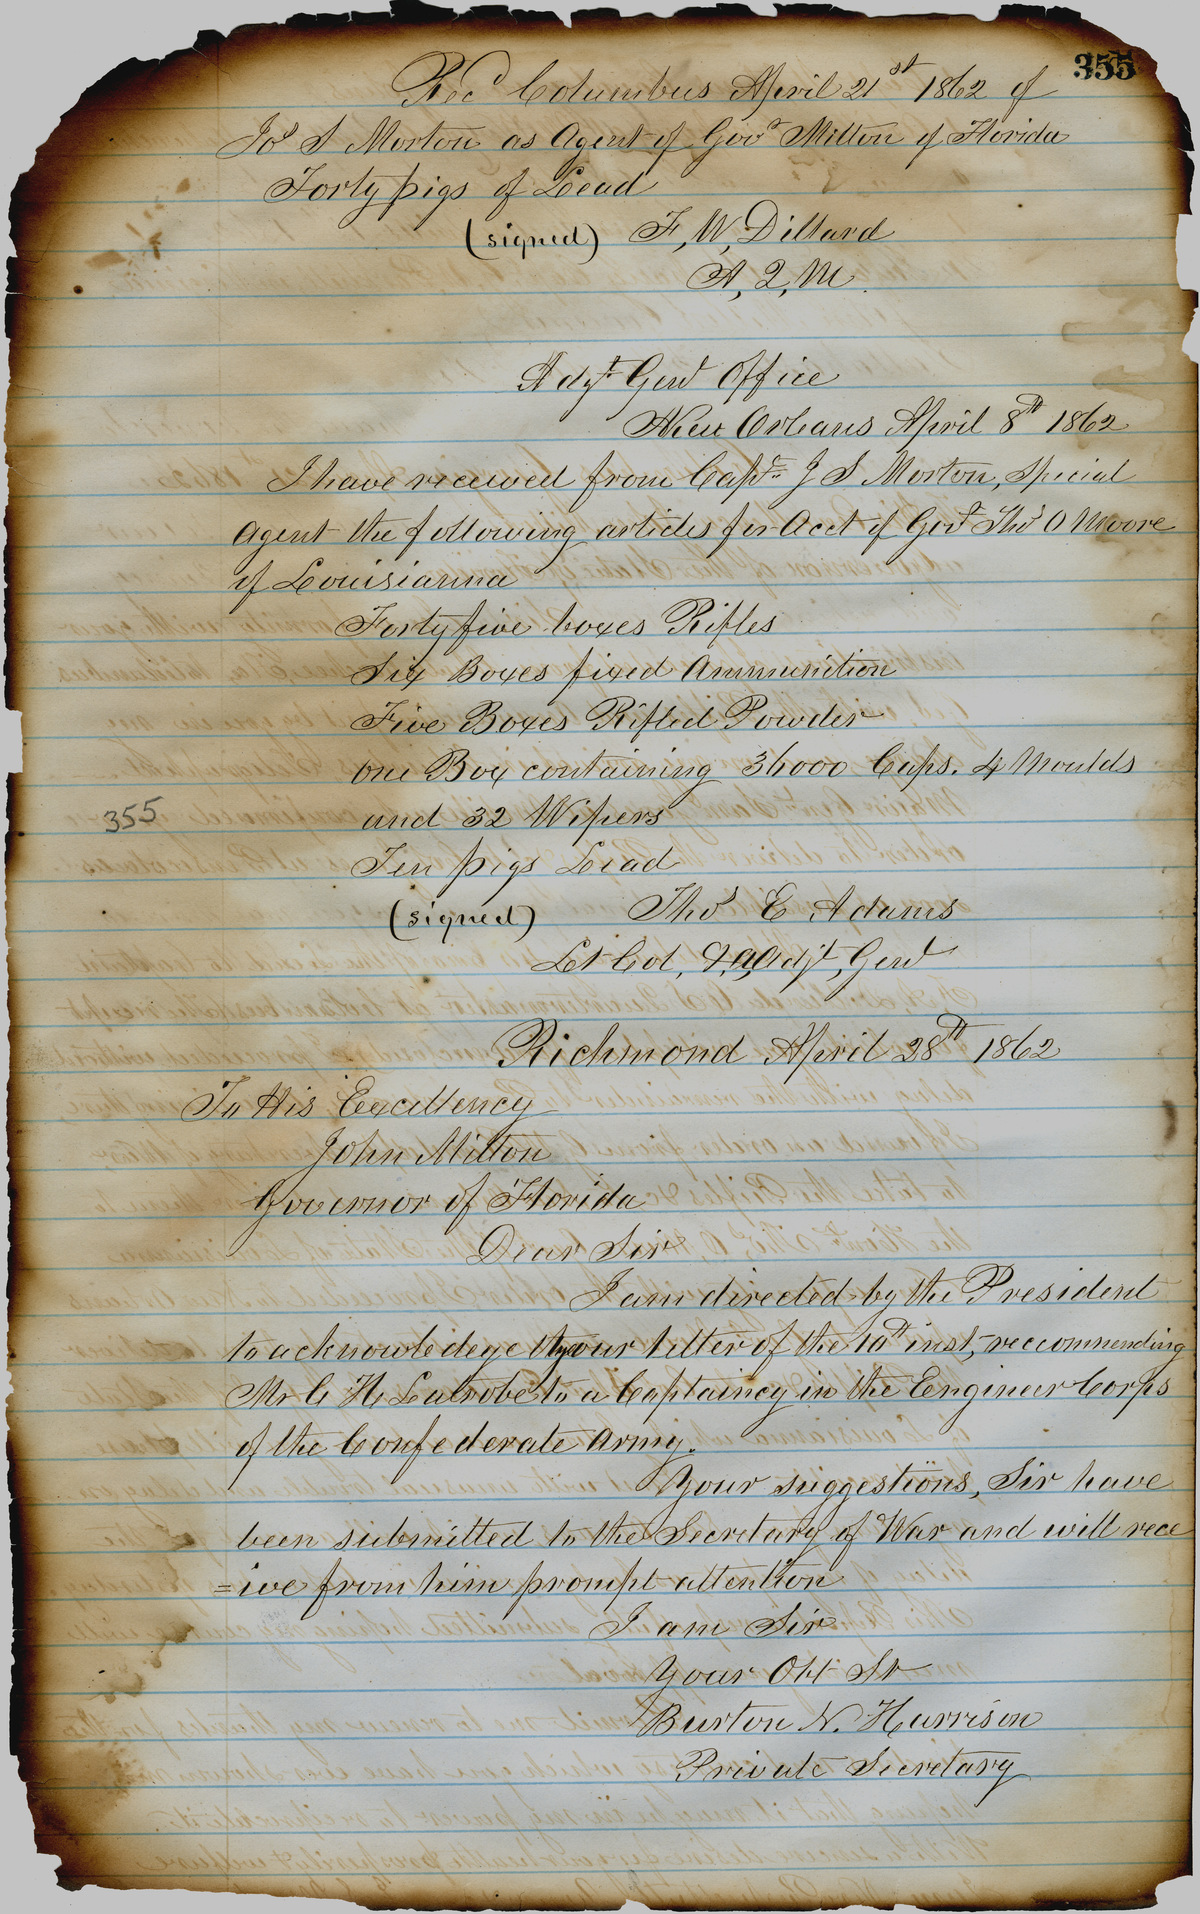 355
Recd Columbus April 21st 1862 of
Jos S Morton as Agent of Govr Milton of Florida
Forty pigs of Lead
(signed) F, W, Dillard
A, Q, M.
Adjt Genl Office
New Orleans April 8th 1862
I have received from Capt J S Morton, Special
Agent the following articles for Acct of Govr Thos O Moore
of Louisianna
Forty five boxes Rifles
Six Boxes fixed Ammunition
Five Boxes Rifled Powder
one Box containing 36000 Caps. 4 Moulds
355
and 32 Wipers
Ten pigs Lead
(signed) Thos E Adams
Lt Col, & Adjt, Genl
Richmond April 28th 1862
To His Excellency
John Milton
Governor of Florida
Dear Sir
I am directed by the President
to acknowledege your letter of the 10th inst, reccommending
Mr C H Latrobe to a Captaincy in the Engineer Corps
of the Confederate Army.
Your suggestions, Sir have
been submitted to the Secretary of War and will rece
=ive from him prompt attention
I am Sir
Your Obt St
Burton N. Harrison
Private Secretary